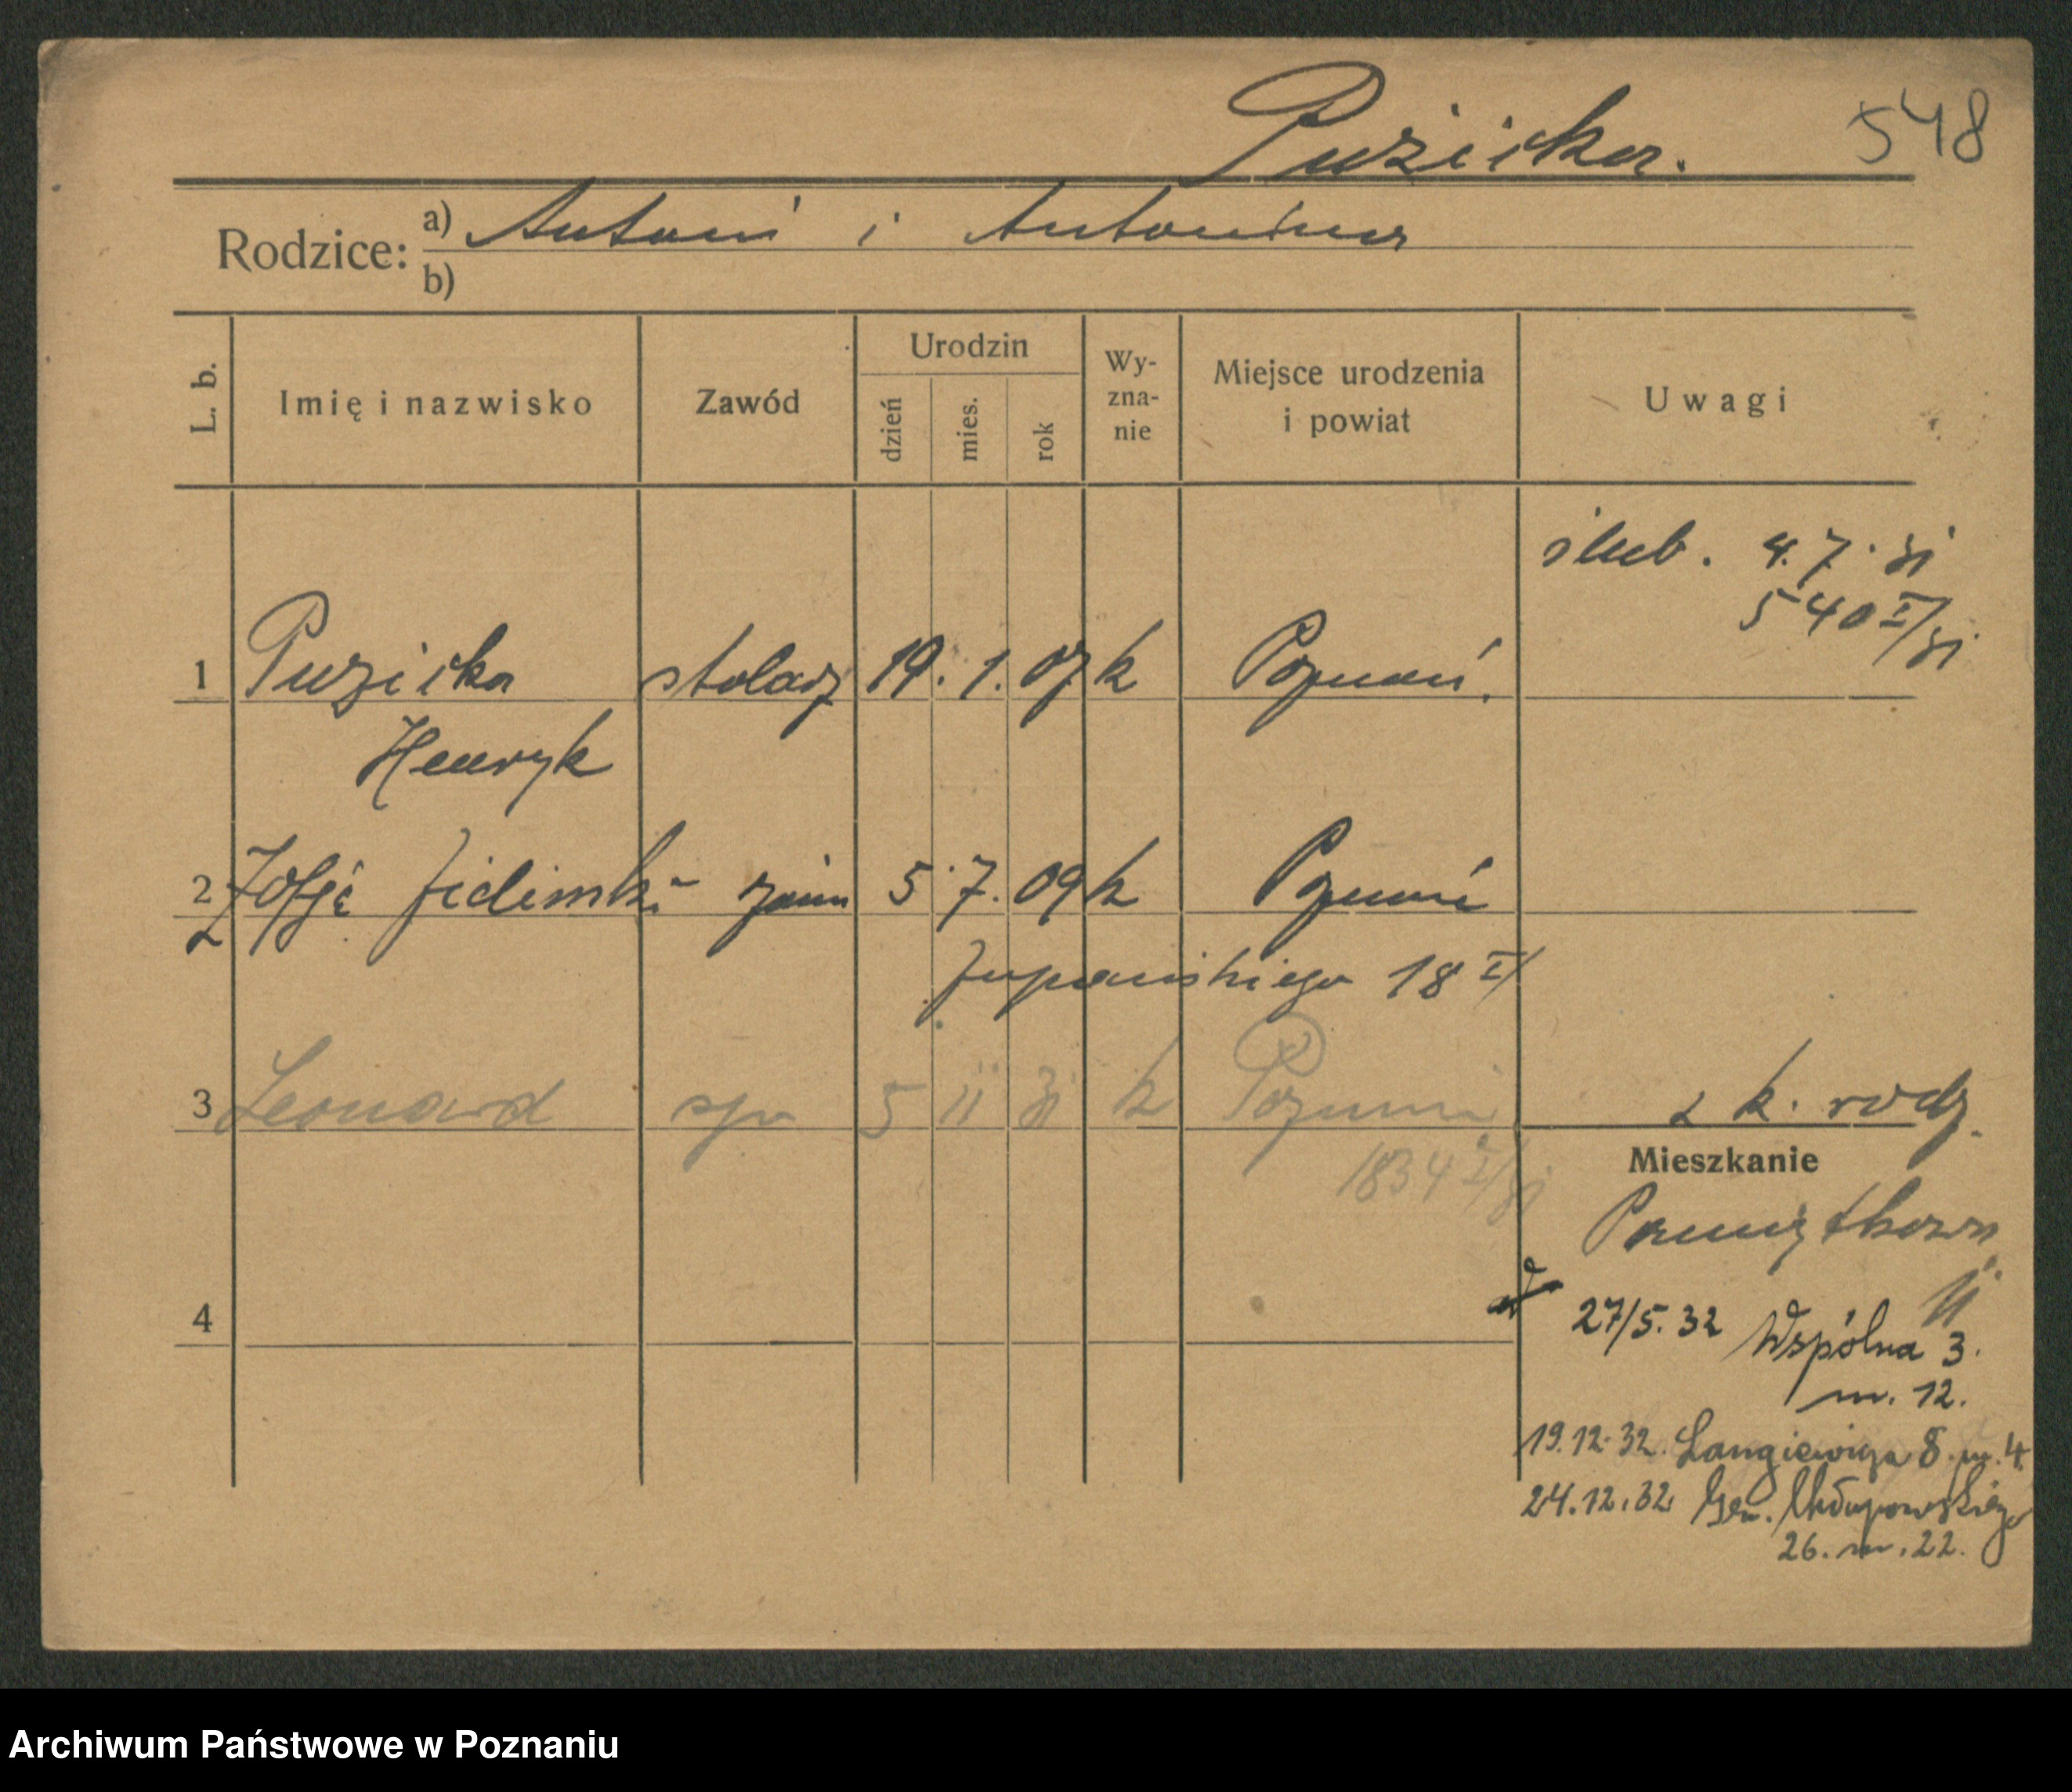 Puzicka. 548
Rodzice: a) Antoni i Antonina
b)
L. b. Imię i nazwisko Zawód Urodzin dzień mies. rok Wy-zna-nie Miejsce urodzenia i powiat Uwagi
ślub. 4.7.31
540 I/31
1 Puzicka stolarz 19. 1. 07 k Poznań.
Henryk
2 Zofja 5 7. 09 k Poznań
Żupańskiego 18 I/
3 Leonard syn 5 11 31 k Poznań
z k. rodz.
1834 I/31
Mieszkanie
Pamiątkowa
4
27/5. 32 Wspólna 3.
m. 12.
19.12.32. Langiewicza 8. m. 4.
24.12.32 Gen. Chłapowskiego
26. m. 22.
Archiwum Państwowe w Poznaniu